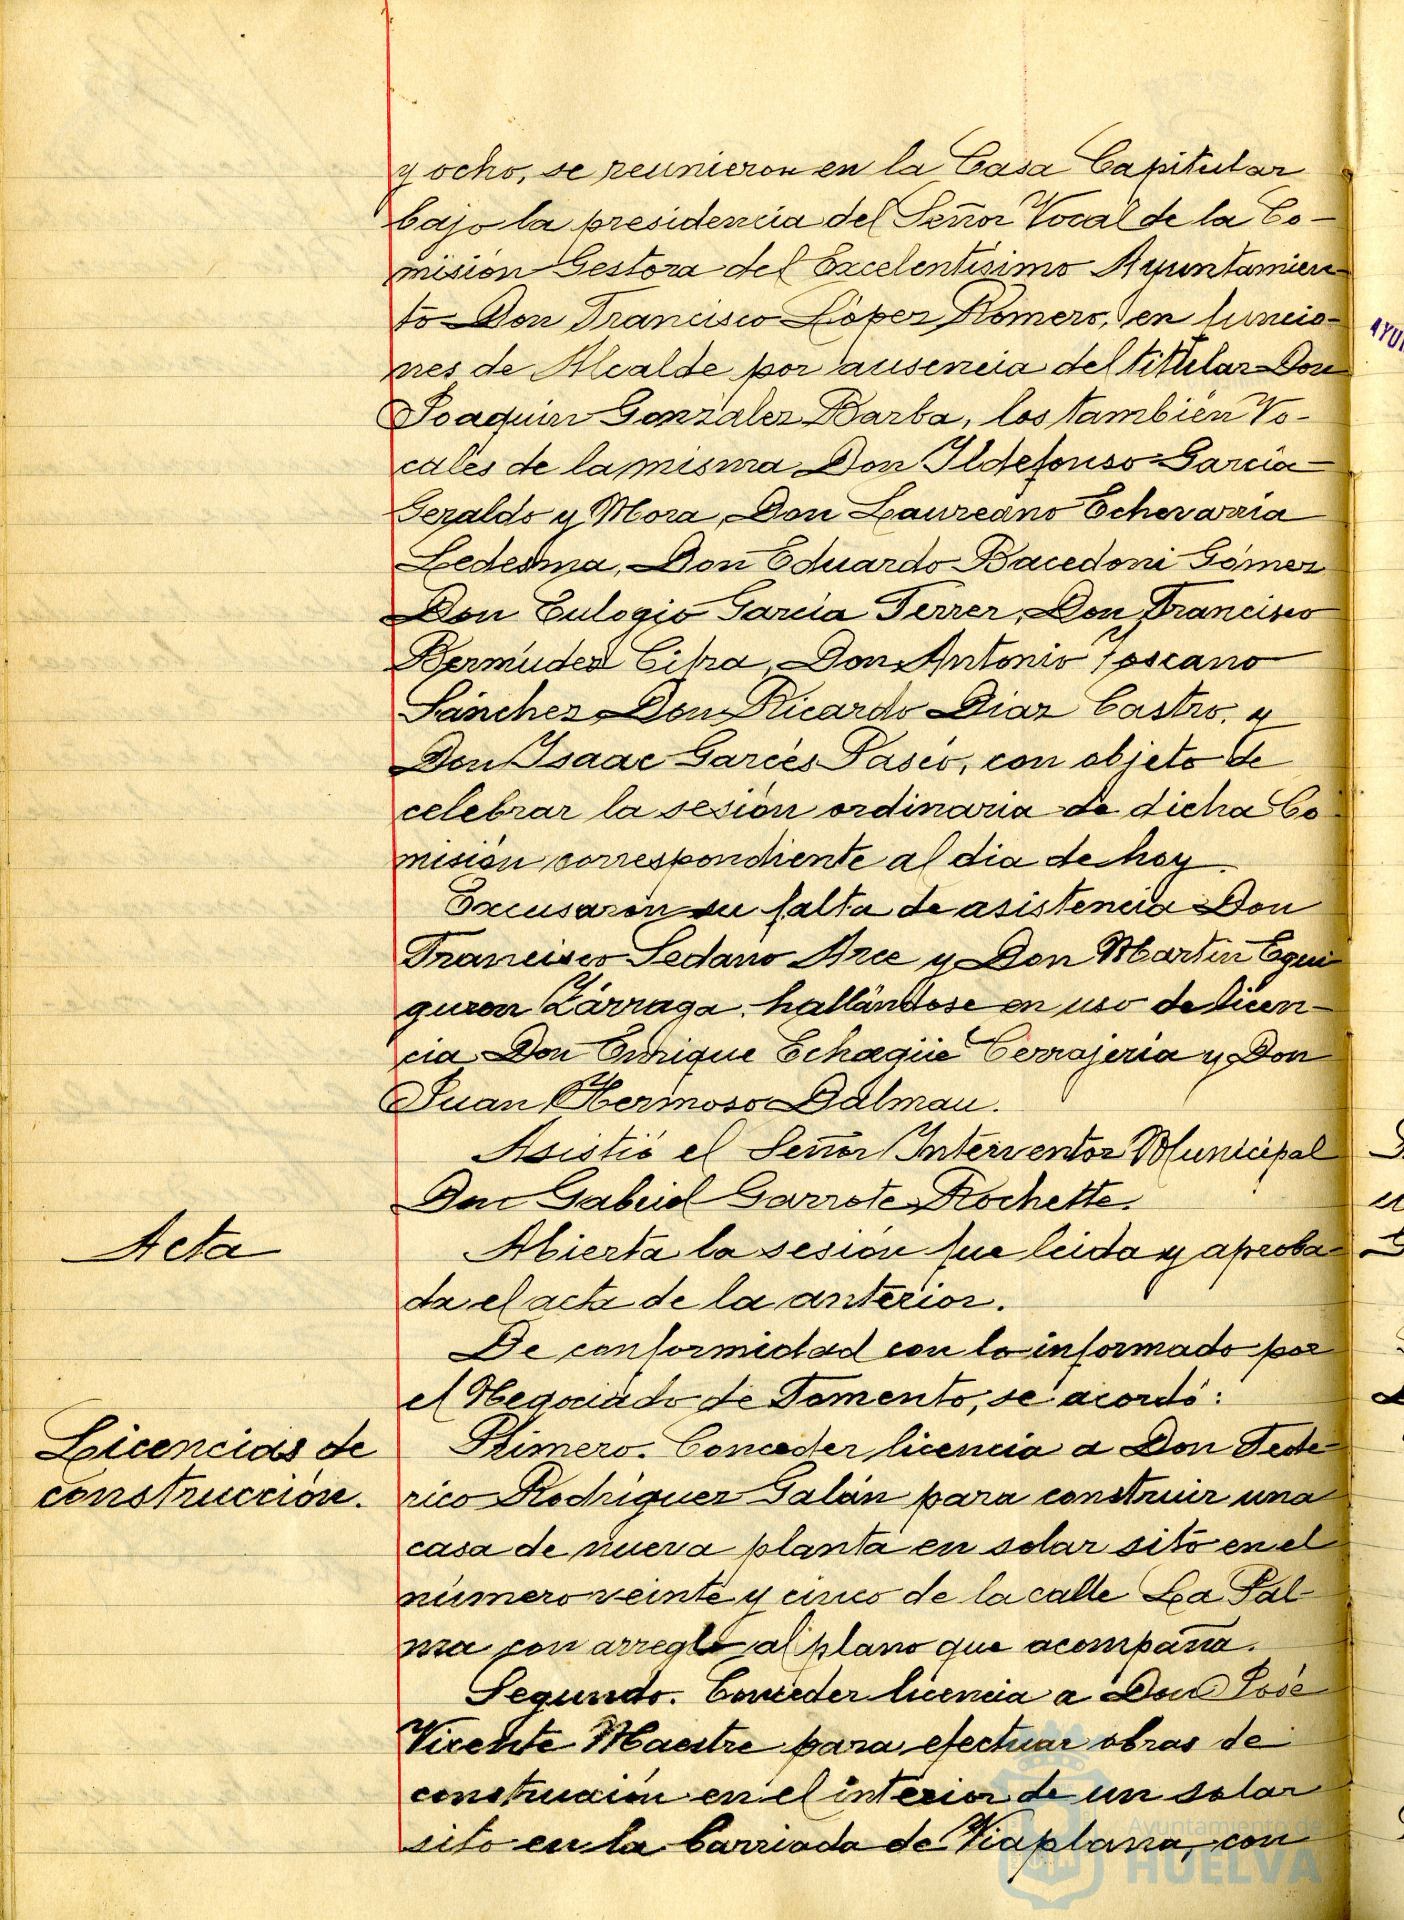 y ocho, se reunieron en la Casa Capitular
bajo la presidencia del Señor Vocal de la Co-
misión Gestora del Excelentísimo Ayuntamien-
to Don Francisco López Romero, en funcio-
nes de Alcalde por ausencia del titular Don
Joaquin González Barba, los también Vo-
cales de la misma Don Ildefonso García
Geraldo y Mora, Don Laureano Echevarria
Ledesma, Don Eduardo Bacedoni Gómez
Don Eulogio García Ferrer, Don Francisco
Bermúdez Cifra, Don Antonio Toscano
Sánchez Don Ricardo Diaz Castro, y
Don Isaac Garcés Paseo, con objeto de
celebrar la sesión ordinaria de dicha Co
misión correspondiente al dia de hoy.
Excusaron su falta de asistencia Don
Francisco Sedano Arce y Don Martín Egui
guren Zárraga, hallándose en uso de licen-
cia Don Enrique Echagüe Cerrajería y Don
Juan Hermoso Dalmau.
Asistió el Señor Interventor Municipal
Don Gabriel Garrote Rochette.
Acta
Abierta la sesión fue leida y aproba-
da el acta de la anterior.
De conformidad con lo informado por
el Negociado de Fomento, se acordó:
Licencias de
construcción.
Primero. Conceder licencia a Don Fede-
rico Rodríguez Galán para construir una
casa de nueva planta en solar sito en el
número veinte y cinco de la calle La Pal-
ma con arreglo al plano que acompaña.
Segundo. Conceder licencia a Don José
Vicente Maestre para efectuar obras de
construcción en el interior de un solar
sito en la barriada de Viaplana, con
Ayuntamiento de
HUELVA